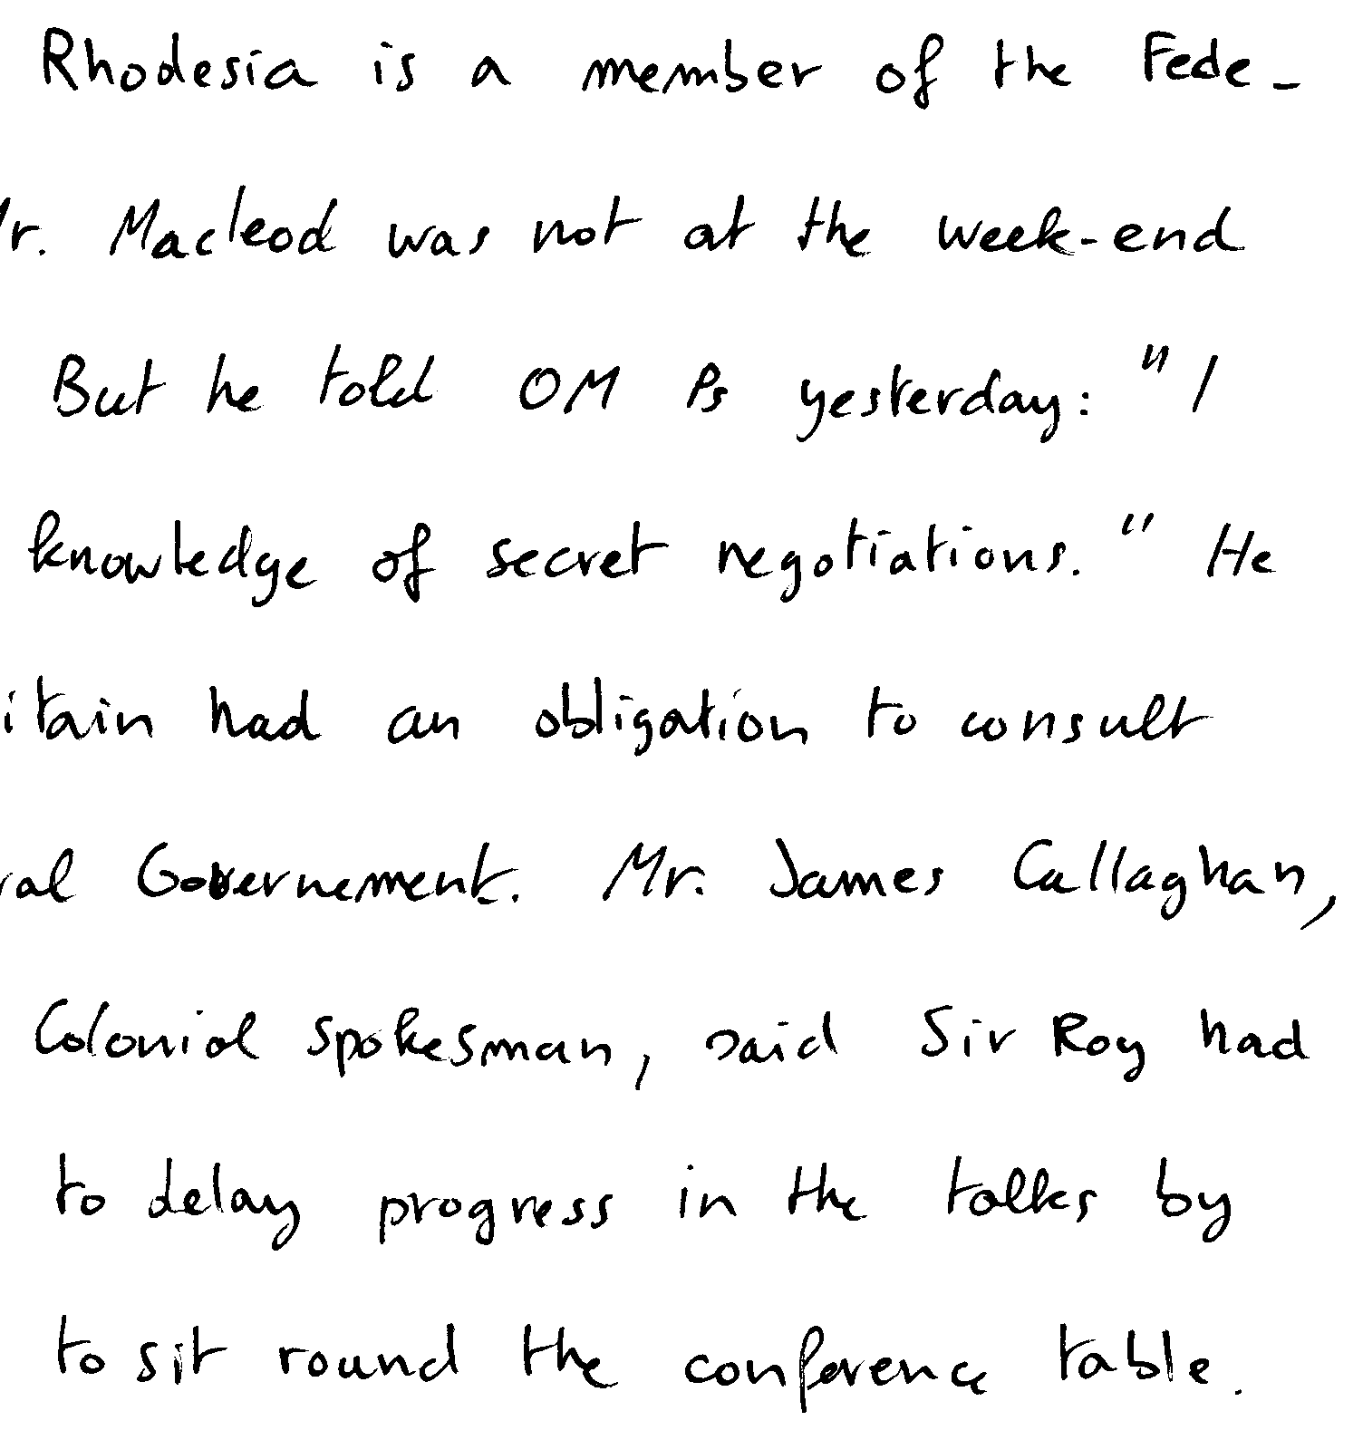 Rhodesia is a member of the Fede-
Mr. Macleod was not at the week-end
But he told OM Ps yesterday: "I
knowledge of secret negotiations." He
itain had an obligation to consult
ral Governement. Mr. James Callaghan,
Colonial spokesman, said Sir Roy had
to delay progress in the talks by
to sit round the conference table.